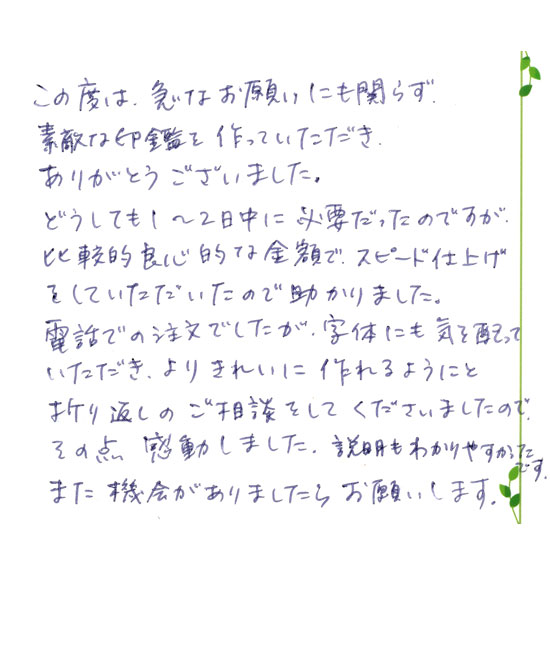 この度は、急なお願いにも関らず、
素敵な印鑑を作っていただき、
ありがとうございました。
どうしても1～2日中に必要だったのですが、
比較的良心的な金額で、スピード仕上げ
をしていただいたので助かりました。
電話での注文でしたが、字体にも気を配って
いただき、よりきれいに作れるようにと
折り返しのご相談をしてくださいましたので、
その点、感動しました。説明もわかりやすかった
です。
また機会がありましたらお願いします。